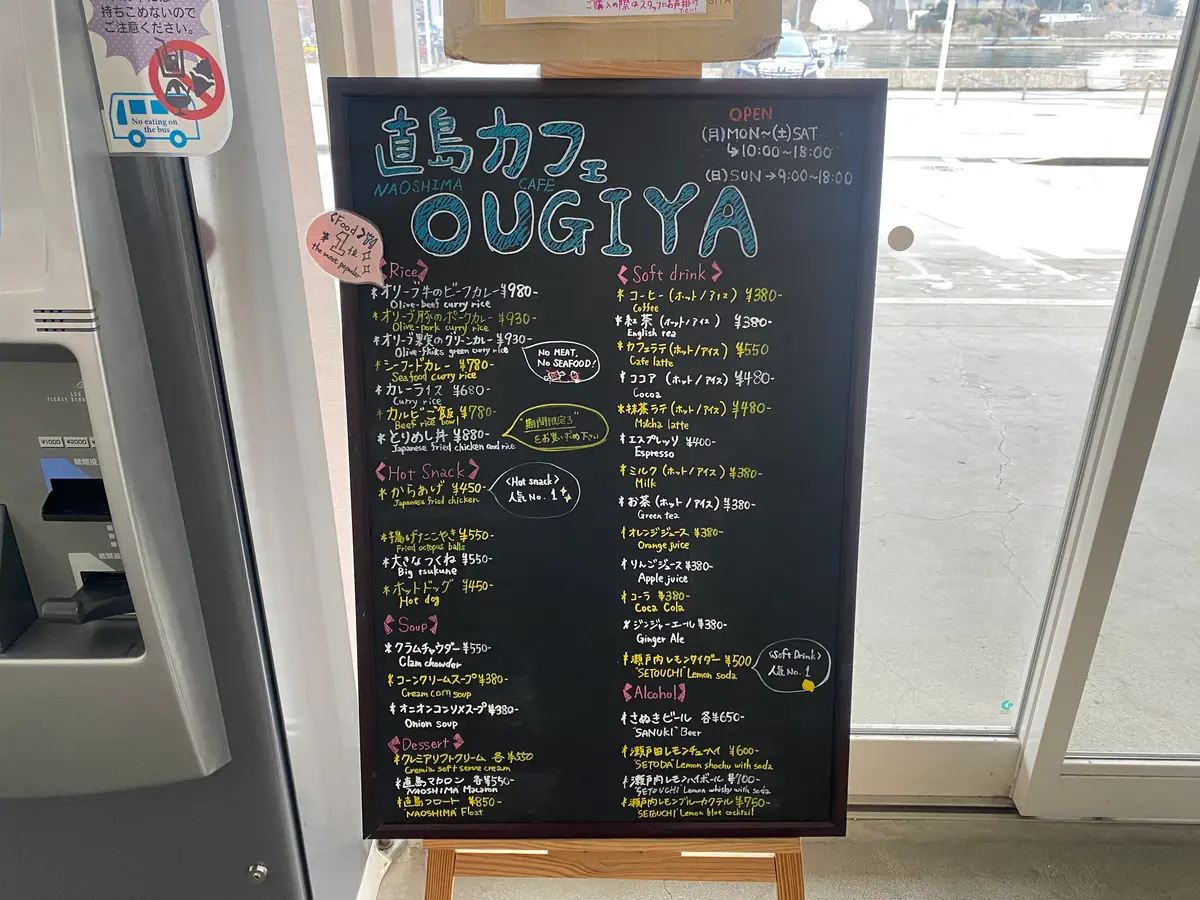 持ちこめないので
ご注意ください。
No eating on
the bus
ご購入の際はスタッフにお声掛け
下さい!
直島カフェ
NAOSHIMA CAFE
OUGIYA
OPEN
(月)MON~(土)SAT
↳10:00~18:00
(日)SUN→9:00~18:00
<Food>
1位
the most popular
《Rice》
*オリーブ牛のビーフカレー¥980-
Olive-beef curry rice
*オリーブ豚のポークカレー¥930-
Olive-pork curry rice
*オリーブ果実のグリーンカレー¥930-
green curry rice
NO MEAT,
NO SEAFOOD!
*シーフードカレー ¥780-
Seafood curry rice
*カレーライス ¥680-
Curry rice
*カルビご飯 ¥780-
Beef rice bowl
*とりめし丼 ¥880-
Japanese fried chicken and rice
《Hot Snack》
*からあげ ¥450-
Japanese fried chicken
<Hot snack>
人気No.1
*揚げたこやき¥550-
Fried octopus balls
*大きなつくね¥550-
Big tsukune
*ホットドッグ ¥450-
Hot dog
《Soup》
*クラムチャウダー¥550-
Clam chowder
*コーンクリームスープ¥380-
Cream corn soup
*オニオンコンソメスープ¥380-
Onion soup
《Dessert》
*クレミアソフトクリーム 各¥550
Cremia soft serve cream
*直島マカロン 各¥550-
NAOSHIMA Macaron
*直島フロート ¥850-
"NAOSHIMA" Float
《Soft drink》
*コーヒー(ホット/アイス) ¥380-
Coffee
*紅茶(ホット/アイス) ¥380-
English tea
*カフェラテ(ホット/アイス) ¥550
Cafe latte
*ココア(ホット/アイス)¥480-
Cocoa
*抹茶ラテ(ホット/アイス)¥480-
Matcha latte
*エスプレッソ ¥400-
Espresso
*ミルク(ホット/アイス)¥380-
Milk
*お茶(ホット/アイス)¥380-
Green tea
*オレンジジュース ¥380-
Orange juice
*りんごジュース¥380-
Apple juice
*コーラ ¥380-
Coca Cola
*ジンジャーエール¥380-
Ginger Ale
*瀬戸内レモンサイダー ¥500
"SETOUCHI" Lemon soda
<Soft Drink>
人気No.1
《Alcohol》
*さぬきビール 各¥650-
"SANUKI" Beer
*瀬戸田レモンチューハイ ¥600-
"SETODA" Lemon shochu with soda
*瀬戸内レモンハイボール ¥700-
"SETOUCHI" Lemon whisky with soda
*瀬戸内レモンブルーカクテル ¥750-
"SETOUCHI" Lemon blue cocktail
¥1000 ¥2000